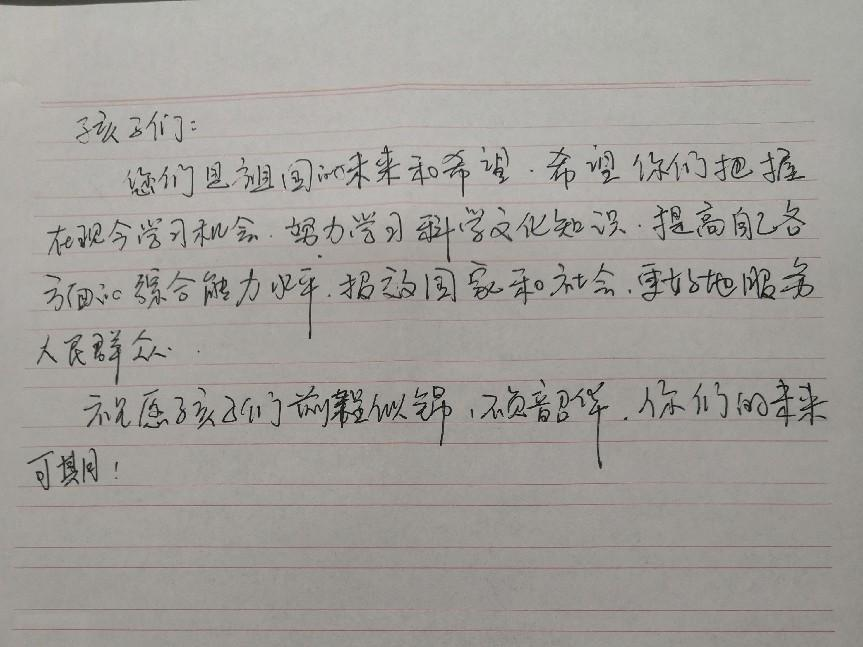 孩子们:
您们是祖国的未来和希望.希望你们把握
在现今学习机会.努力学习科学文化知识.提高自己各
方面的综合能力水平.报效国家和社会.更好地服务
人民群众.
祝愿孩子们前程似锦,不负韶华.你们的未来
可期!